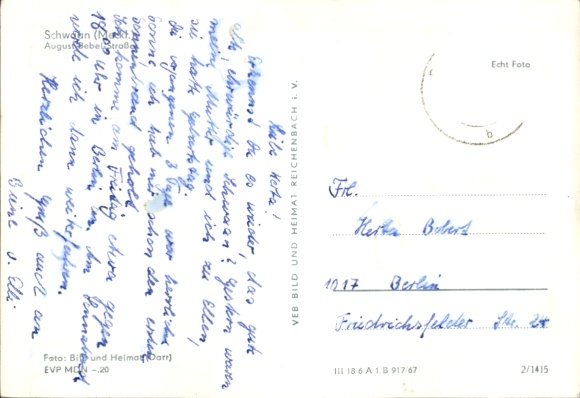 Schwaan (Meckl.)
August-Bebel-Straße
Liebe Herta!
Erkennst Du es wieder, das gute
alte, ehrwürdige Schwaan? Gestern waren
meine Mutter und ich zu Ellen,
sie hatte Geburtstag.
Die vergangenen 3 Tage war herrliche
Sonne, ich hab mir schon den ersten
Sonnenbrand geholt.
Ich komme am Freitag etwa gegen
18.00 Uhr in Berlin an. Am Sonnabend
werde ich dann weiterfahren.
Herzlichen Gruß auch an
v. Elli
Foto: Bild und Heimat (Darr)
EVP MDN -.20
VEB BILD UND HEIMAT REICHENBACH i. V.
Echt Foto
b
Frl.
Herta Bobert
1017 Berlin
Friedrichsfelder Str. 24
III 18 6 A 1/B 917/67
2/1415